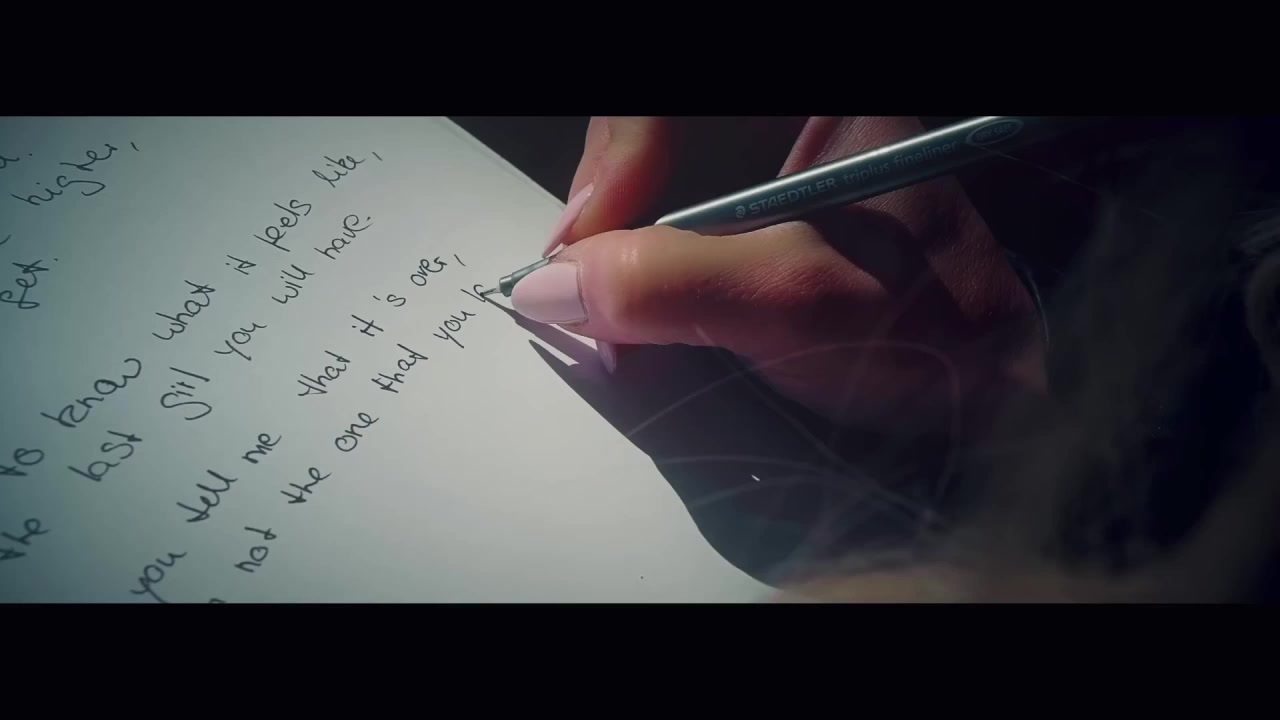 higher,
get.
to know what it feels like,
the last girl you will have.
you tell me that it's over,
not the one that you
STAEDTLER triplus fineliner